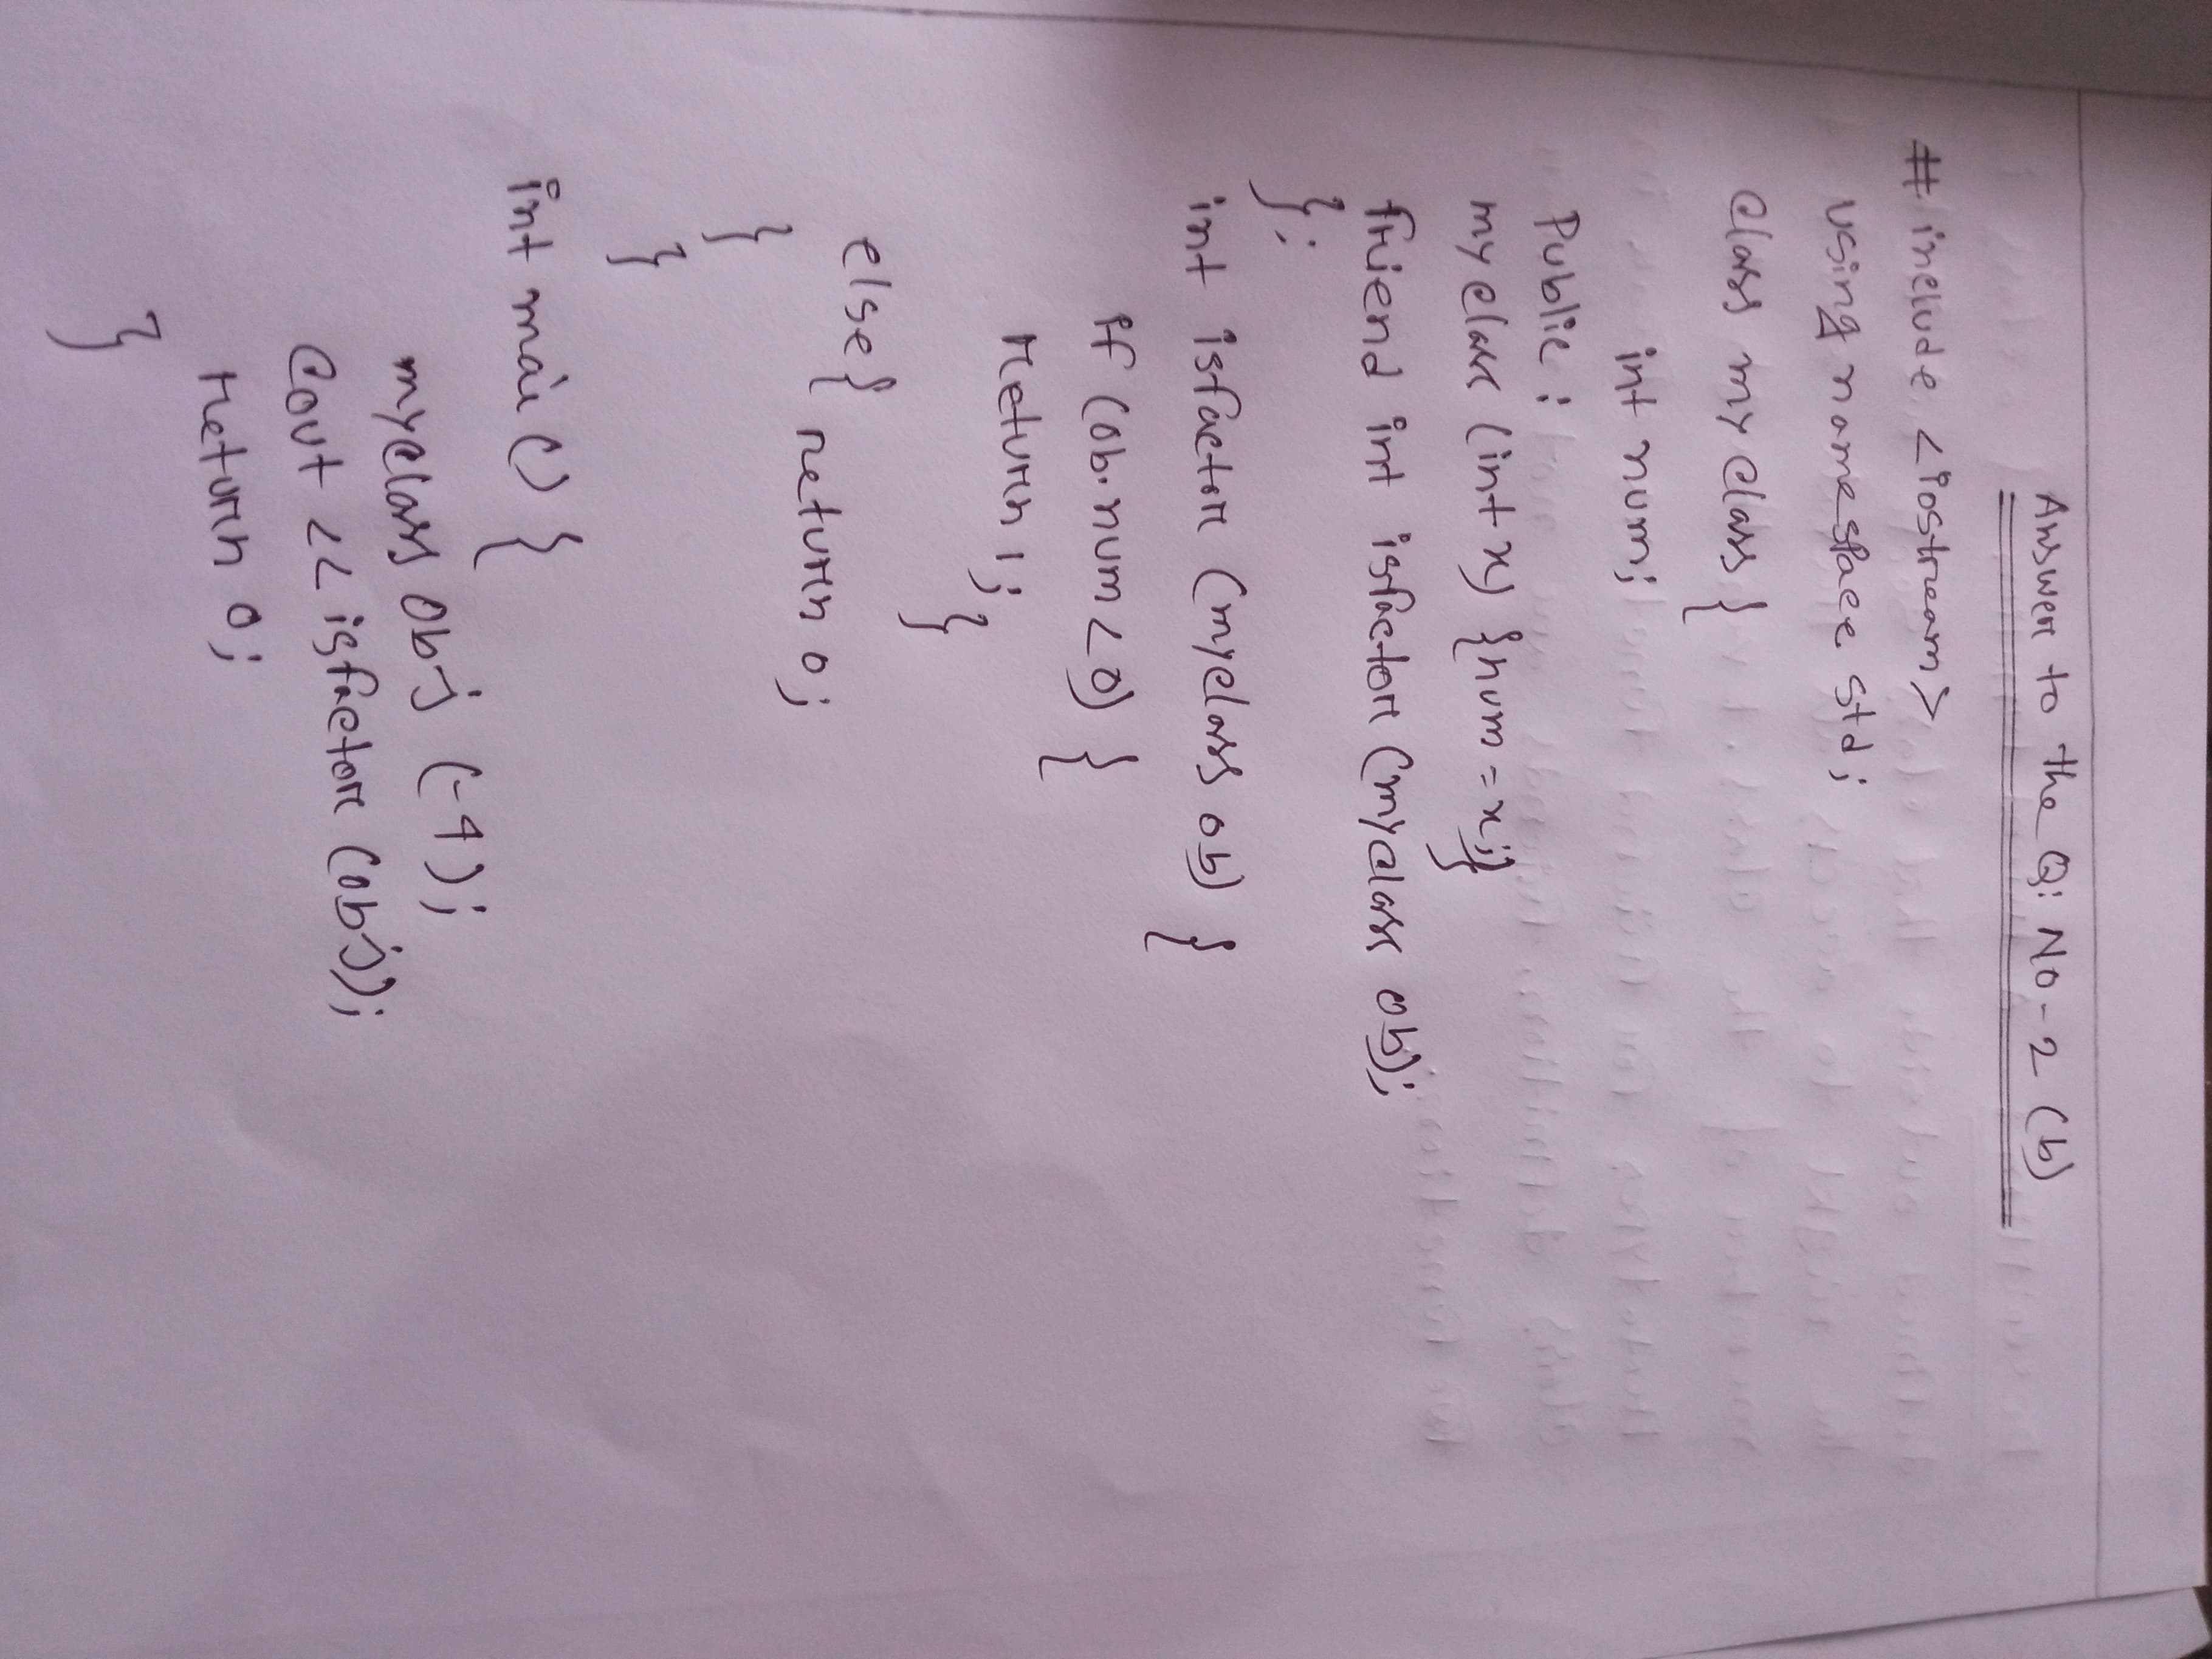 Answer to the Q: NO-2 (b)
# include <iostream>
using namespace std;
class myclass {
int num;
Public :
myclass (int x) {num = x;}
friend int isfactor (myclass ob);
};
int isfactor (myclass ob) {
if (ob.num < 0) {
return 1;
}
else {
return 0;
}
}
int mai () {
myclass obj (-4);
Cout << isfactor (obj);
return 0;
}